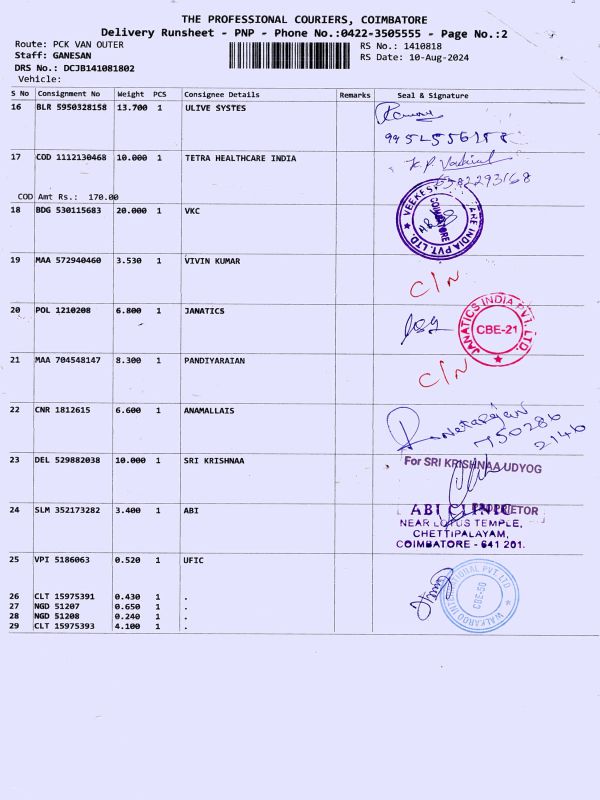 THE PROFESSIONAL COURIERS, COIMBATORE
Delivery Runsheet - PNP - Phone No.:0422-3505555 - Page No.:2
Route: PCK VAN OUTER
RS No.: 1410818
Staff: GANESAN
RS Date: 10-Aug-2024
DRS No.: DCJB141081802
Vehicle:
S No Consignment No Weight PCS Consignee Details Remarks Seal & Signature
16 BLR 5950328158 13.700 1 ULIVE SYSTES
17 COD 1112130468 10.000 1 TETRA HEALTHCARE INDIA
COD Amt Rs.: 170.00
18 BDG 530115683 20.000 1 VKC
COIMBATORE
19 MAA 572940460 3.530 1 VIVIN KUMAR
C/N
20 POL 1210208 6.800 1 JANATICS
JANATICS INDIA PVT. LTD.
CBE-21
21 MAA 704548147 8.300 1 PANDIYARAIAN
C/N
22 CNR 1812615 6.600 1 ANAMALLAIS
750286
2146
23 DEL 529882038 10.000 1 SRI KRISHNAA
For SRI KRISHNAA UDYOG
PROPRIETOR
24 SLM 352173282 3.400 1 ABI
ABI CLINIC
NEAR LOTUS TEMPLE,
CHETTIPALAYAM,
COIMBATORE - 641 201.
25 VPI 5186063 0.520 1 UFIC
CBE-50
26 CLT 15975391 0.430 1 .
27 NGD 51207 0.650 1 .
28 NGD 51208 0.240 1 .
29 CLT 15975393 4.100 1 .